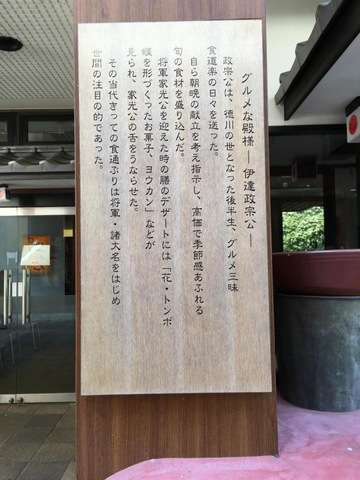 グルメな殿様 ― 伊達政宗公 ―
政宗公は、徳川の世となった後半生、グルメ三昧
食道楽の日々を送った。
自ら朝晩の献立を考え指示し、高価で季節感あふれる
旬の食材を盛り込んだ。
将軍家光公を迎えた時の膳のデザートには「花・トンボ
蝶を形づくったお菓子、ヨウカン」などが
見られ、家光公の舌をうならせた。
その当代きっての食通ぶりは将軍・諸大名をはじめ
世間の注目の的であった。